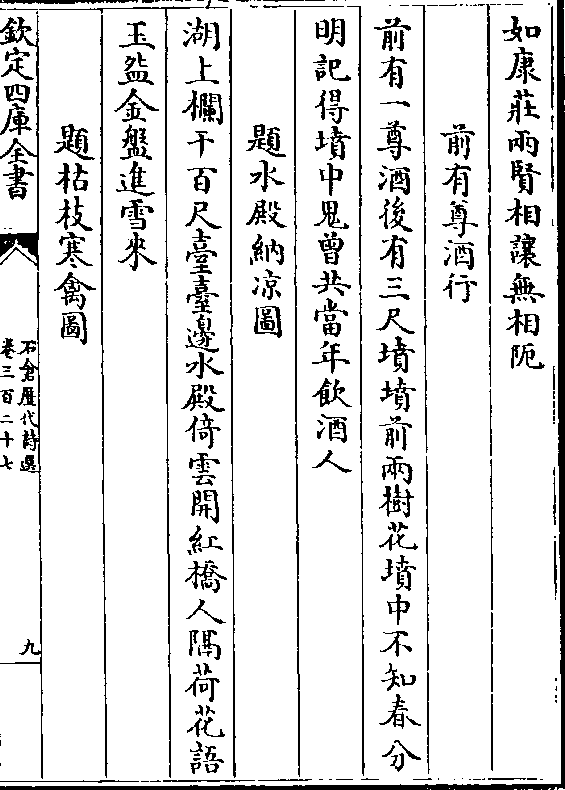 如康莊兩賢相讓無相阨
前有尊酒行
前有一尊酒後有三尺墳墳前兩樹花墳中不知春分
明記得墳中鬼曾共當年飲酒人
題水殿納凉圖
湖上欄干百尺臺臺邊水殿倚雲開紅橋人隔荷花語
玉盌金盤進雪來
題枯枝寒禽圖
欽定四庫全書
石倉歷代詩選
卷三百二十七
九